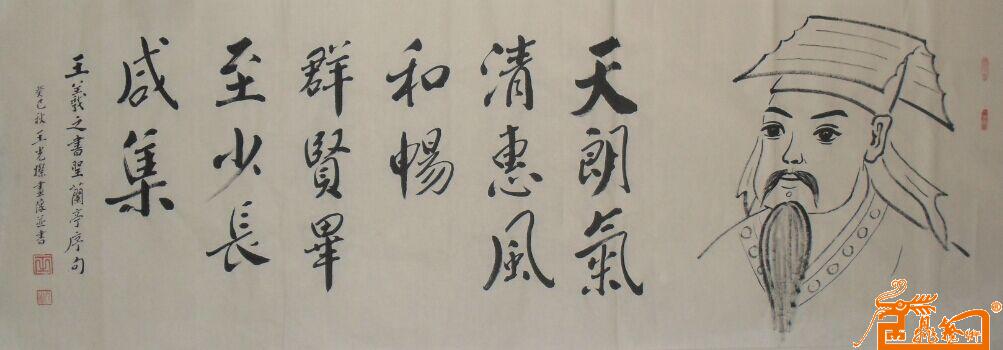 天朗氣
清惠風
和暢
群賢畢
至少長
咸集
王羲之書聖蘭亭序句
癸巳秋王光探畫像並書